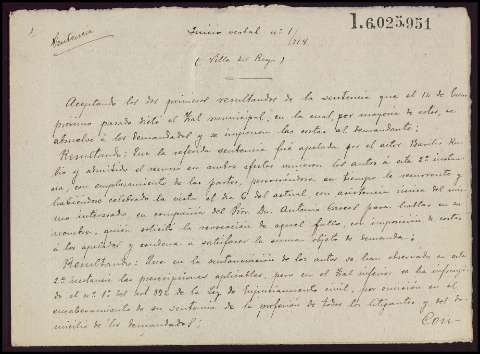 1.6.025,951
Juicio verbal nº 1/
1914
Sentencia
(Villa del Rey)
Aceptando los dos primeros resultandos de la sentencia que el 14 de
próximo pasado dictó el Tral municipal, en la cual, por mayoría de votos, se
absuelve á los demandados y se imponen las costas al demandante;
Resultando: Que la referida sentencia fué apelada por el actor Basilio
y admitido el recurso en ambos efectos vinieron los autos á esta 2ª instan-
cia, con emplazamiento de las partes, personándose en tiempo le recurrente y
habiéndose celebrado la vista el día 6 del actual con asistencia única del mis-
mo interesado, en compañía del Pror. Dn. Antonio para hablar en su
nombre, quién solicitó la revocación de aquel fallo, con imposición de costas
á los apelados y condena á satisfacer la suma objeto de demanda;
Resultando: Que en la sustanciación de los autos se han observado en esta
2ª instancia las prescripciones aplicables, pero en el Tral inferior se ha infringi-
do el nº 1º del art 372 de la Ley de Enjuiciamiento civil, por omisión en el
encabezamiento de su sentencia de la profesión de todos los litigantes y del do-
micilio de los demandados;
Con-